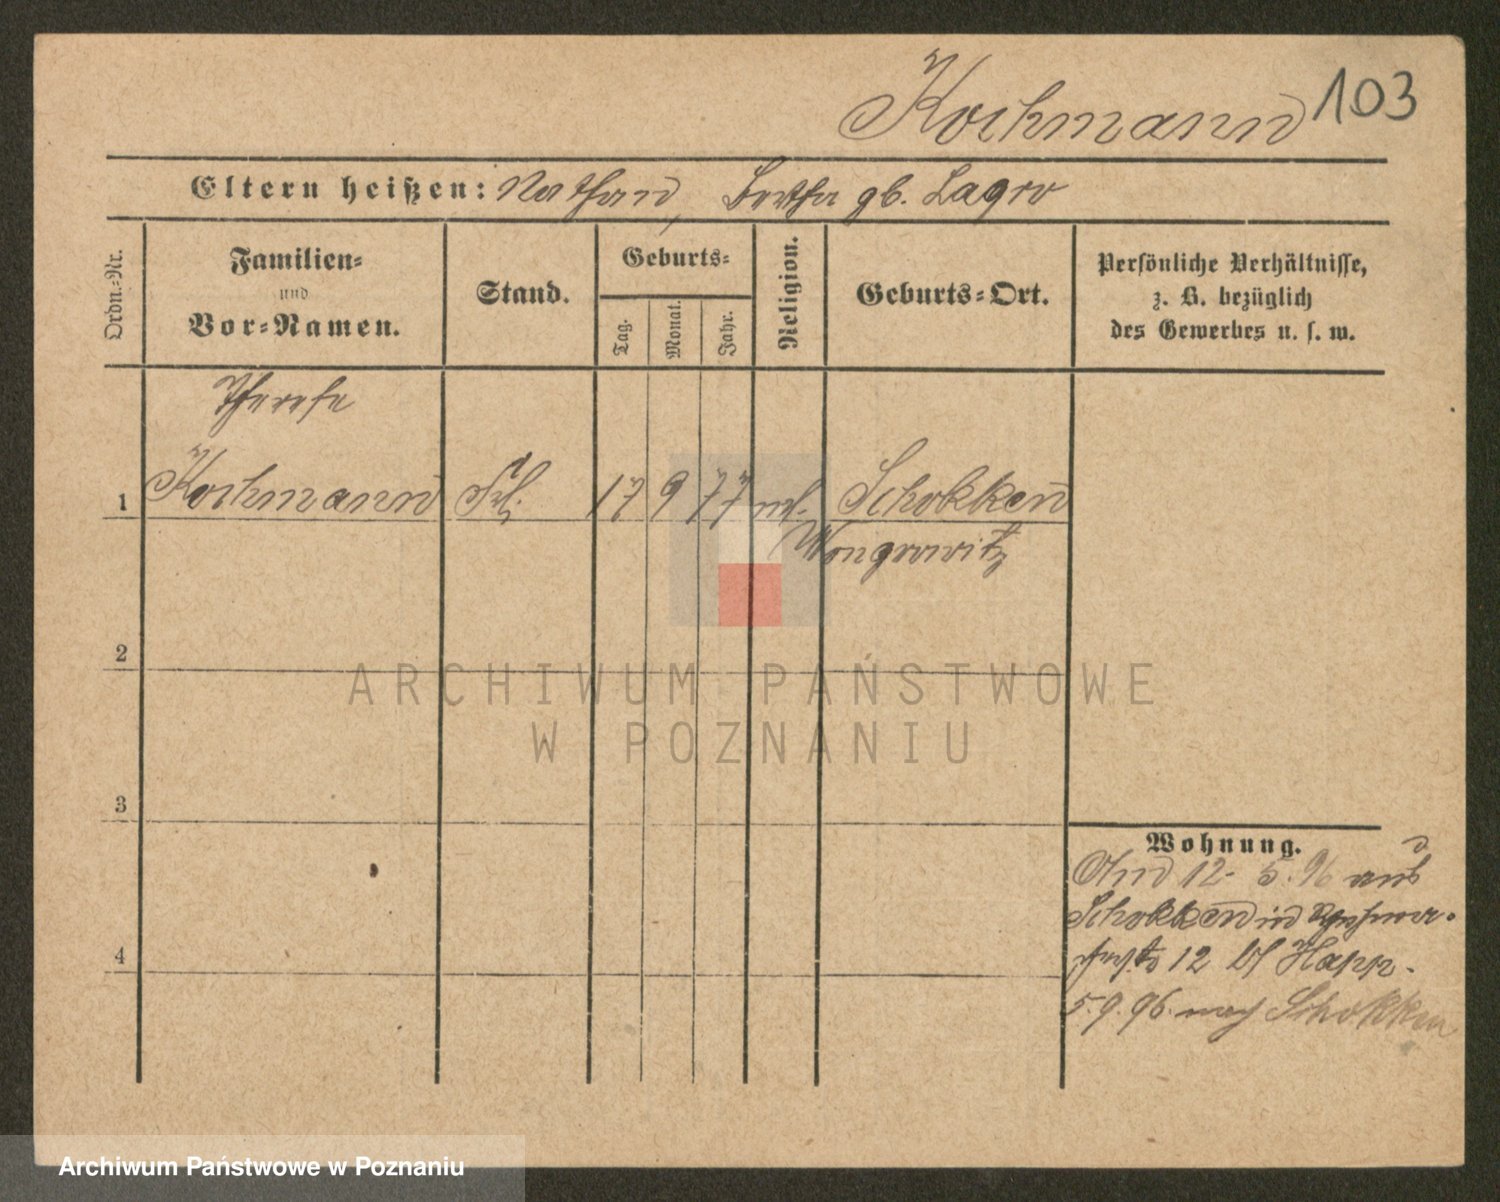 Kochmann 103
Eltern heißen: Nathan, Bertha gb. Lagro
Ordn.-Nr.
Familien-
und
Vor-Namen.
Stand.
Geburts-
Tag.
Monat.
Jahr.
Religion.
Geburts-Ort.
Persönliche Verhältnisse,
z. B. bezüglich
des Gewerbes u. s. w.
Therese
1 Kochmann Frl. 17 9 77 Schokken
Wongrowitz
2
3
4
Wohnung.
12. 5. 96 aus
Schokken in
12 bei Happ.
5.9.96. nach Schokken
ARCHIWUM PAŃSTWOWE
W POZNANIU
Archiwum Państwowe w Poznaniu